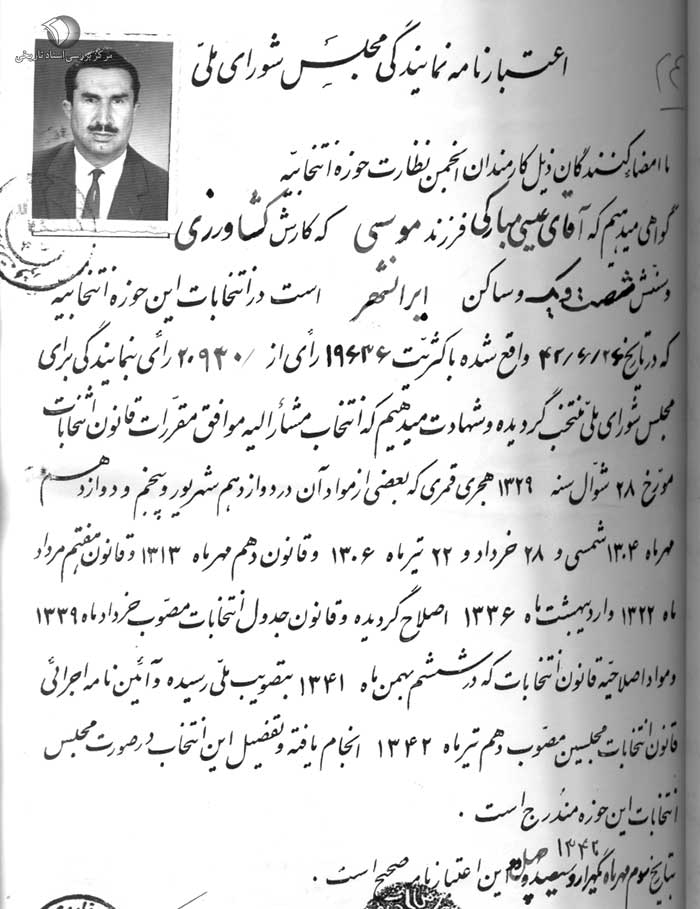 مرکز بررسی اسناد تاریخی
اعتبارنامه نمایندگی مجلس شورای ملّی
ما امضاءکنندگان ذیل کارمندان انجمن نظارت حوزه انتخابیّه
گواهی میدهیم که آقای عیسی مبارکی فرزند موسی که کارش کشاورزی
وسنش شصت و یک وساکن ایرانشهر است در انتخابات این حوزه انتخابیه
که در تاریخ ۴۲/۶/۲۶ واقع شده باکثریّت ۱۹۶۴۶ رأی از ۲۰۹۳۰/ رأی بنمایندگی برای
مجلس شورای ملّی منتخب گردیده وشهادت میدهیم که انتخاب مشارالیه موافق مقرّرات قانون انتخابات
مورّخ ۲۸ شوّال سنه ۱۳۲۹ هجری قمری که بعضی از مواد آن در دوازدهم شهریور و پنجم و دوازدهم
مهرماه ۱۳۰۴ شمسی و ۲۸ خرداد و ۲۲ تیرماه ۱۳۰۶ وقانون دهم مهرماه ۱۳۱۳ وقانون هفتم مرداد
ماه ۱۳۲۲ واردیبهشت ماه ۱۳۳۶ اصلاح گردیده وقانون جدول انتخابات مصوّب خرداد ماه ۱۳۳۹
ومواد اصلاحیّه قانون انتخابات که در ششم بهمن ماه ۱۳۴۱ بتصویب ملّی رسیده وآئین نامه اجرائی
قانون انتخابات مجلسین مصوّب دهم تیرماه ۱۳۴۲ انجام یافته وتفصیل این انتخاب در صورت مجلس
انتخابات این حوزه مندرج است .
۱۳۴۲
بتاریخ سوم مهرماه یکهزار و سیصد و چهل این اعتبارنامه صحیح است .